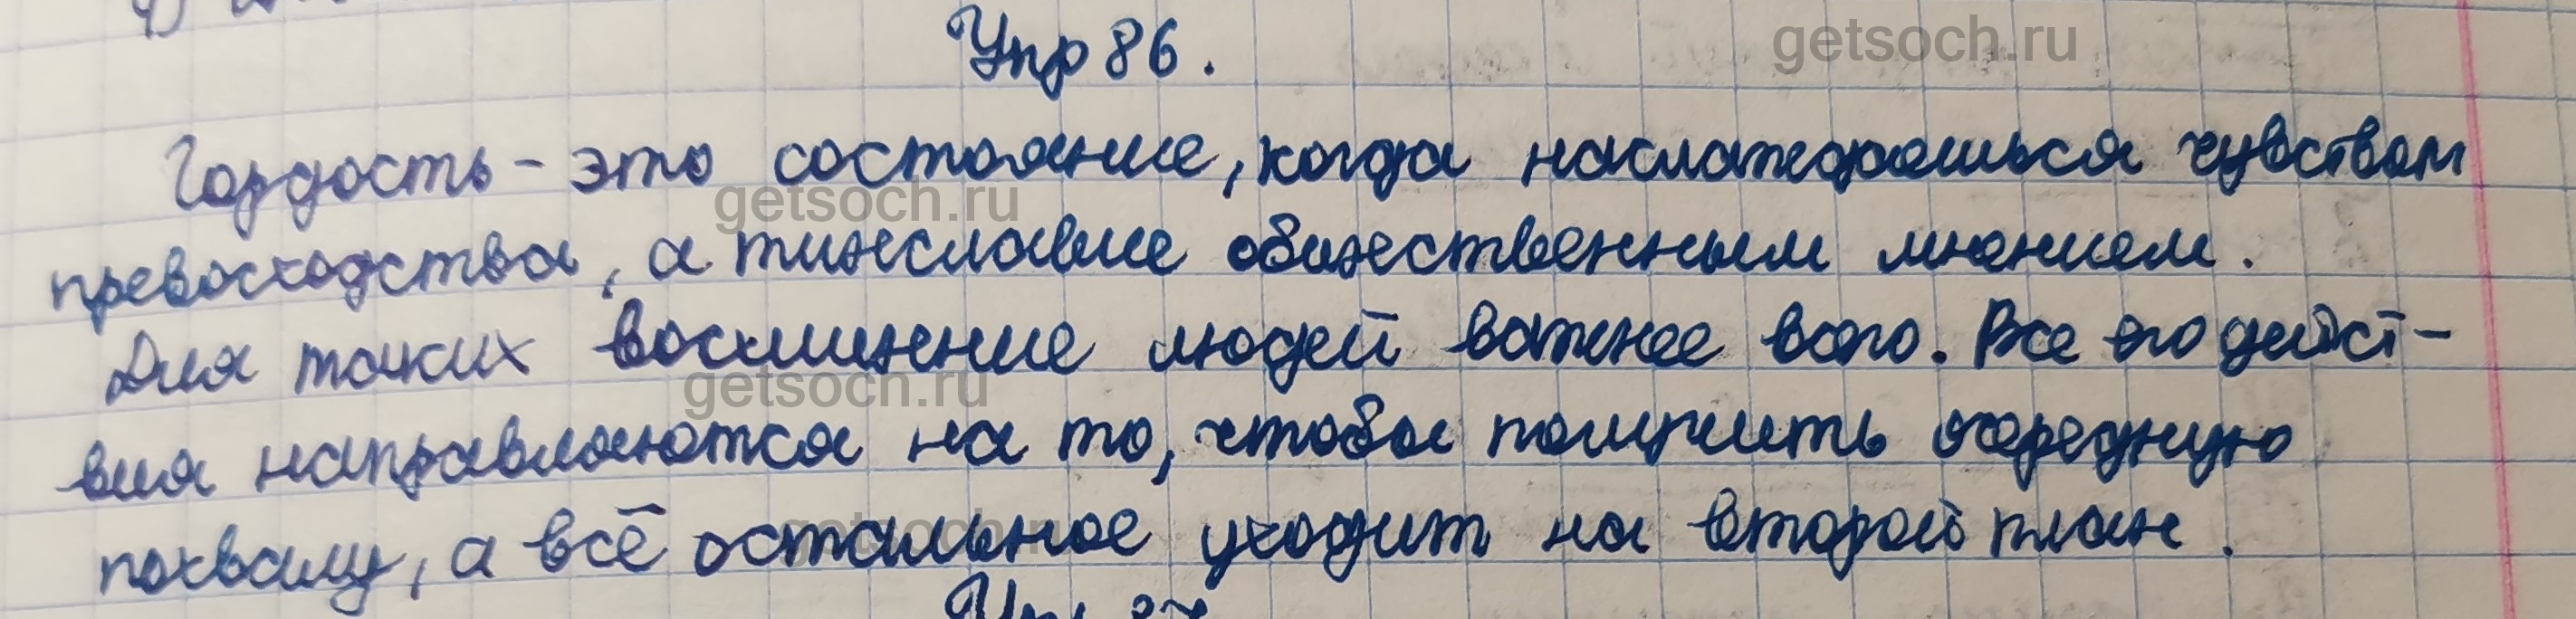 Упр 86.
getsoch.ru
Гордость - это состояние, когда наслаждаешься чувством
getsoch.ru
превосходства, а тщеславие общественным мнением.
Для таких восхищение людей важнее всего. Все его дейст-
getsoch.ru
вия направляются на то, чтобы получить очередную
похвалу, а всё остальное уходит на второй план.
getsoch.ru
Упр 87